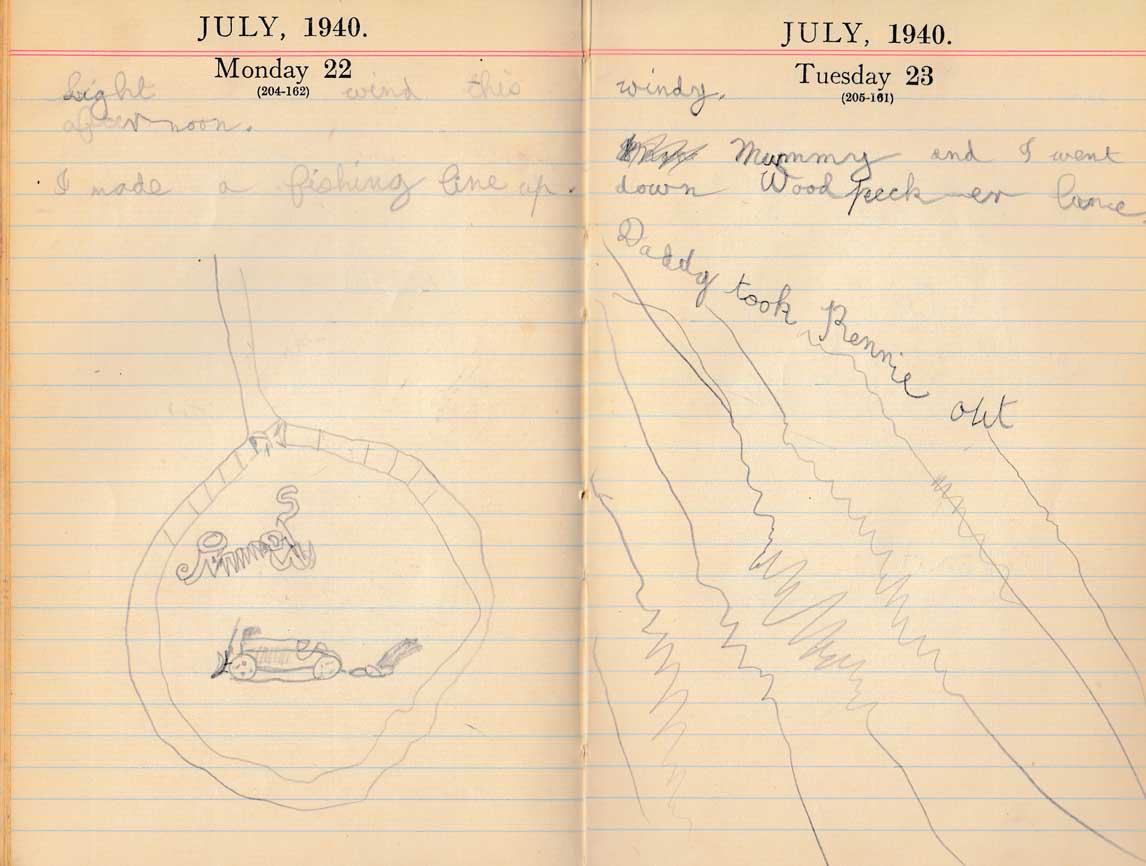 JULY, 1940.
Monday 22
(204-162)
Light wind this
afternoon.
I made a fishing line up.
JULY, 1940.
Tuesday 23
(205-161)
windy.
Mummy and I went
down Woodpecker lane
Daddy took Rennie out